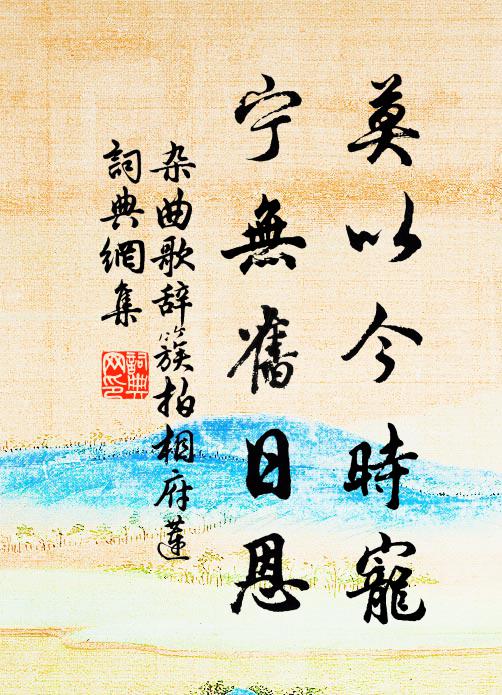 莫以今時寵
宁無舊日恩
杂曲歌辞簇拍相府蓮
詞典網集
詞典网印